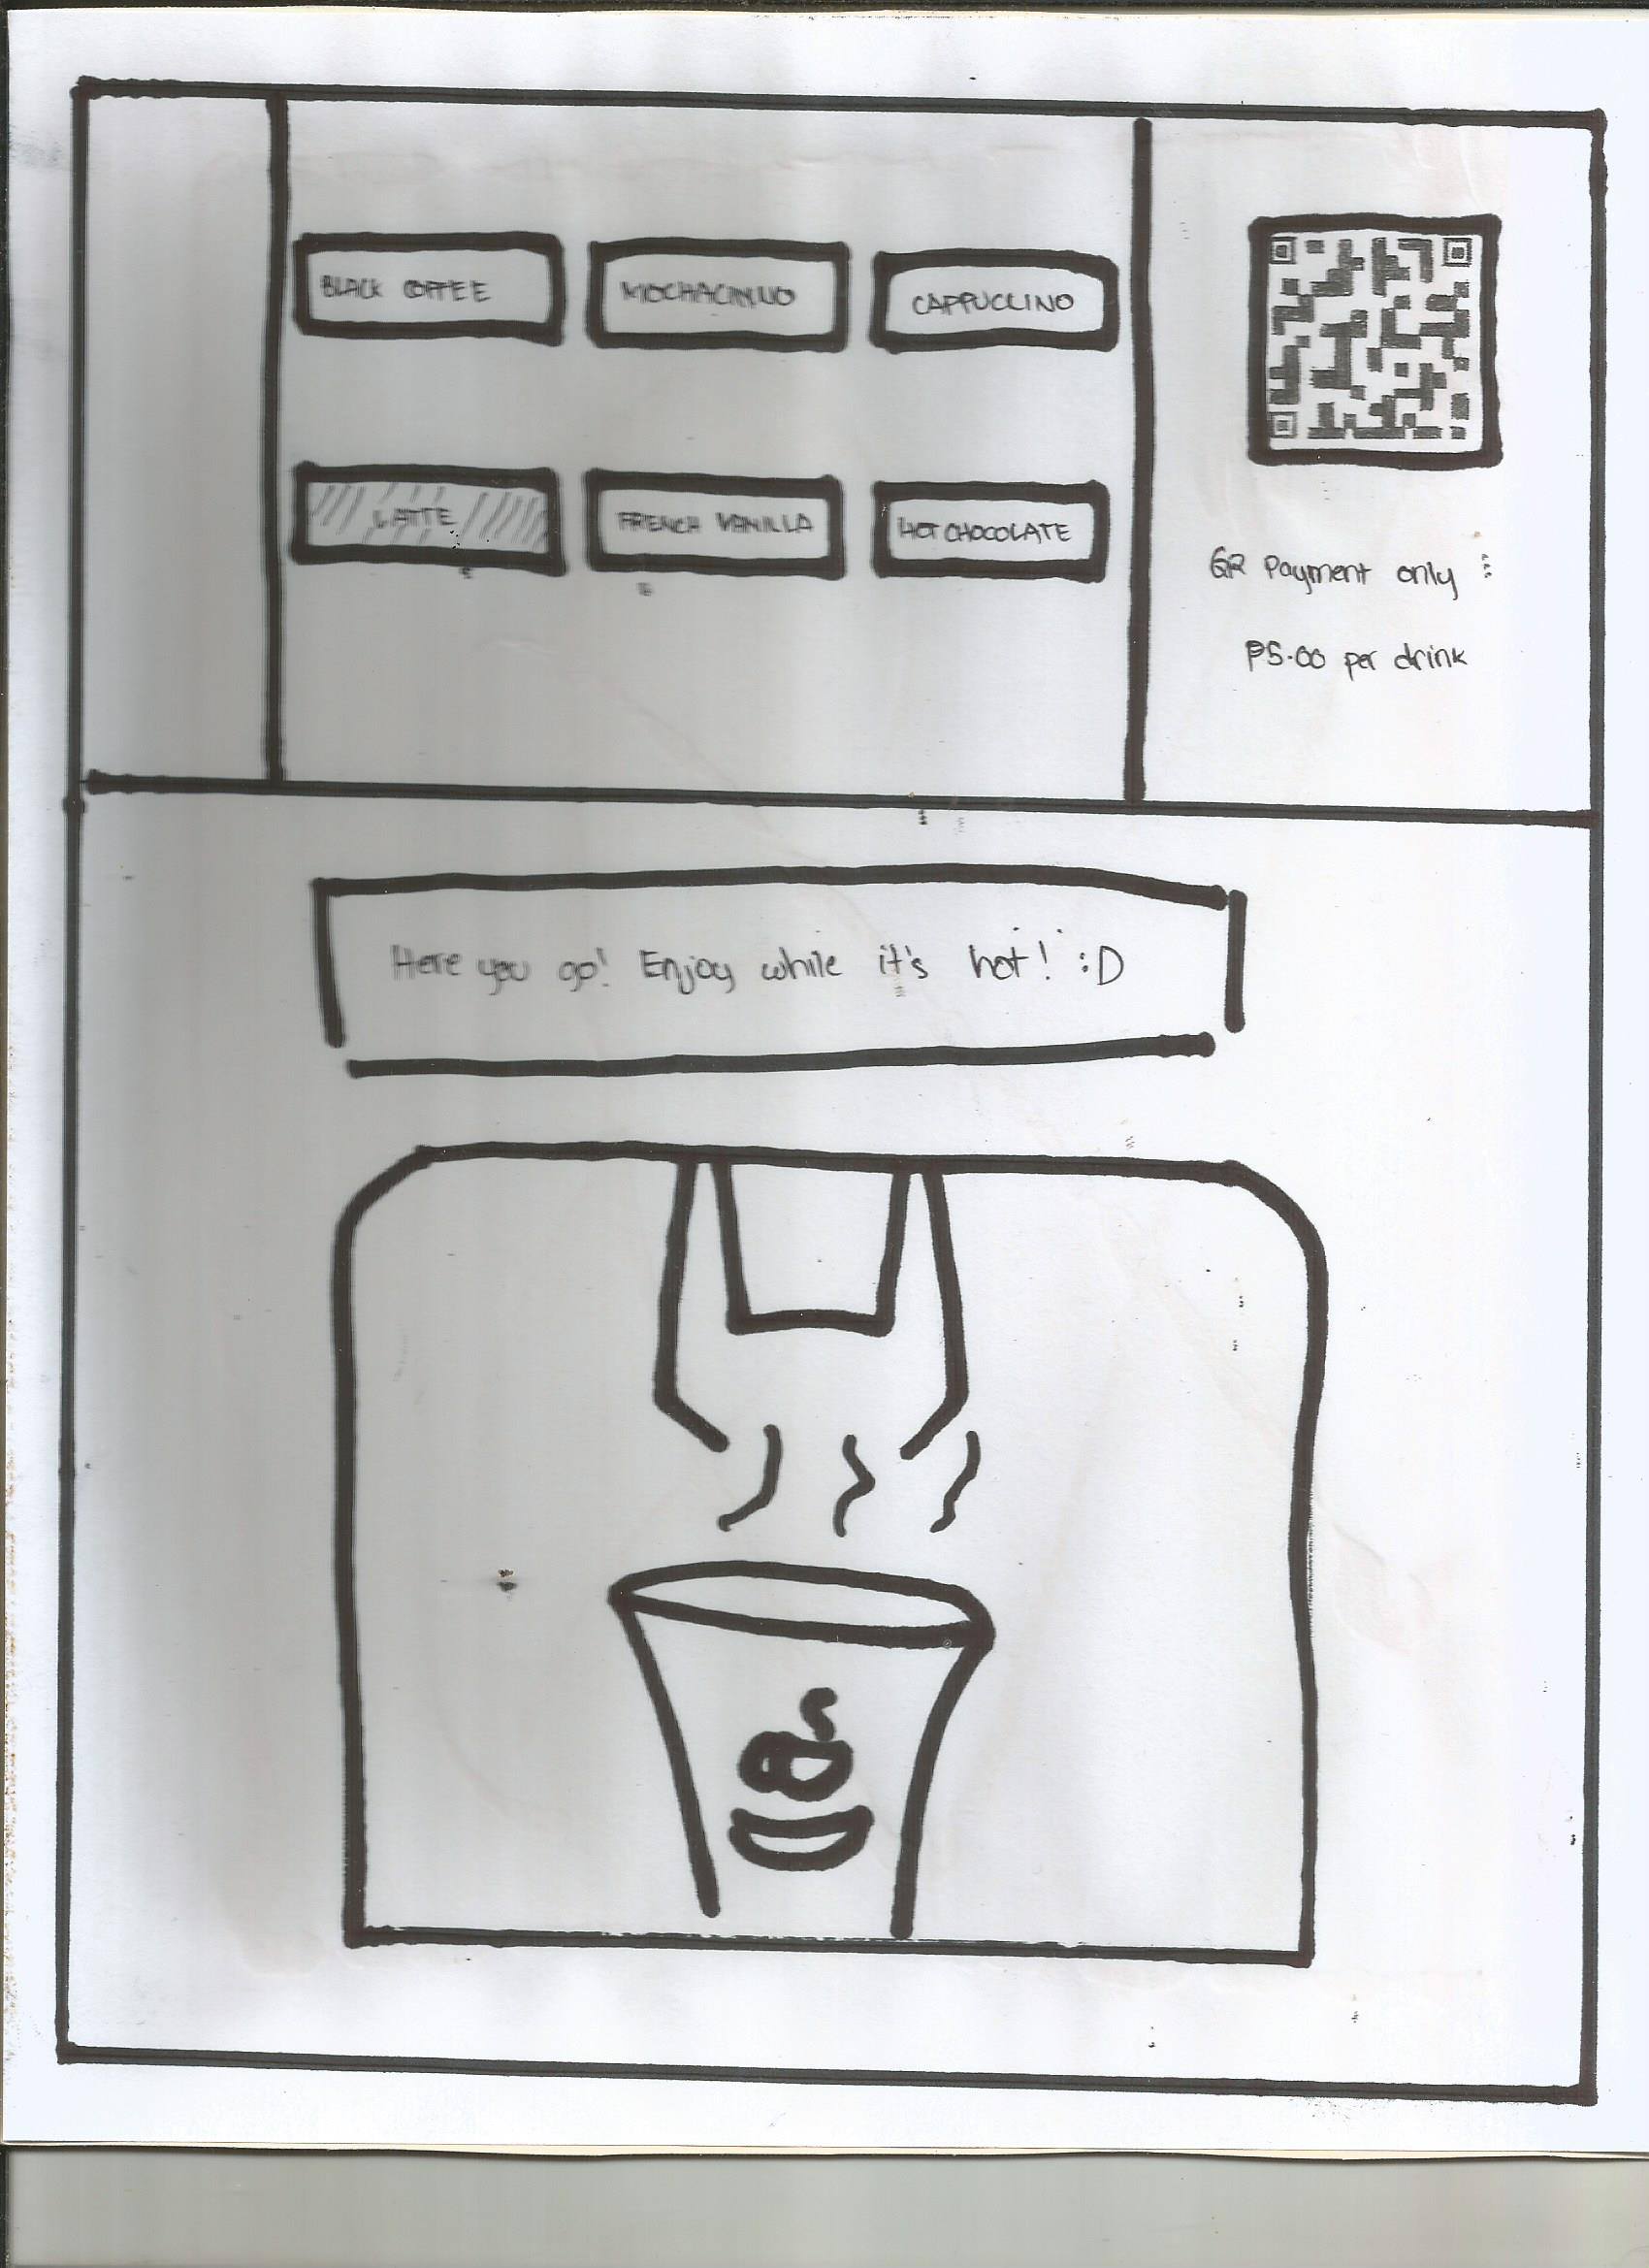 BLACK COFFEE
MOCHACINNO
CAPPUCCINO
LATTE
FRENCH VANILLA
HOT CHOCOLATE
QR Payment only :
₱5.00 per drink
Here you go! Enjoy while it's hot! :D